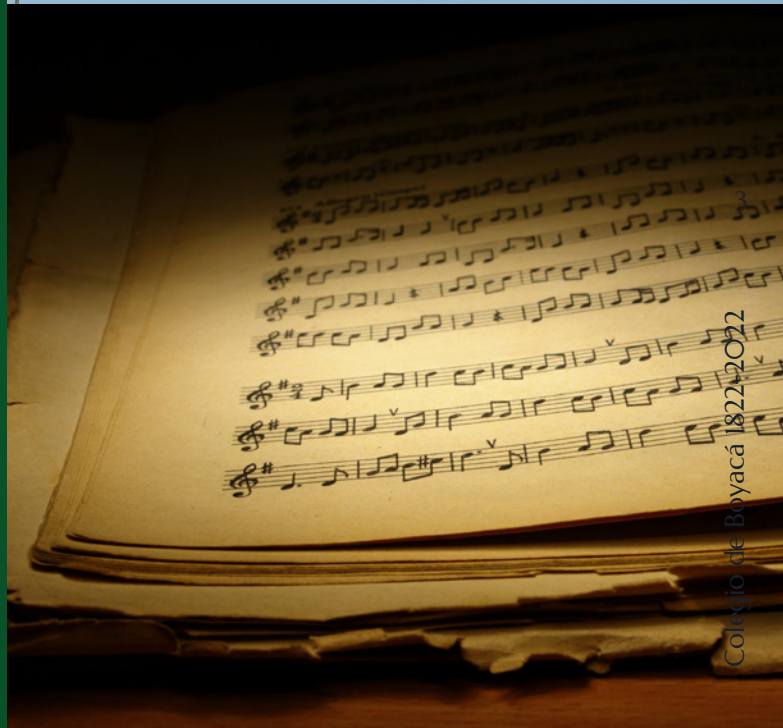 3
Colegio de Boyacá 1822-2022